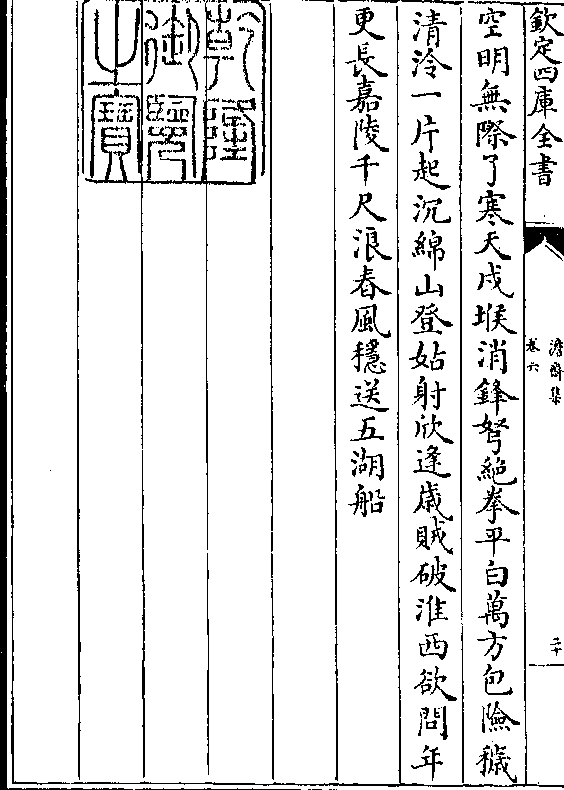 欽定四庫全書
澹齋集
卷六
二十
空明無際了寒天戍堠消鋒弩絶拳平白萬方包險穢
清泠一片起沉綿山登姑射欣逢歲賊破淮西欲問年
更長嘉陵千尺浪春風穩送五湖船
乾隆
御覽
之寶